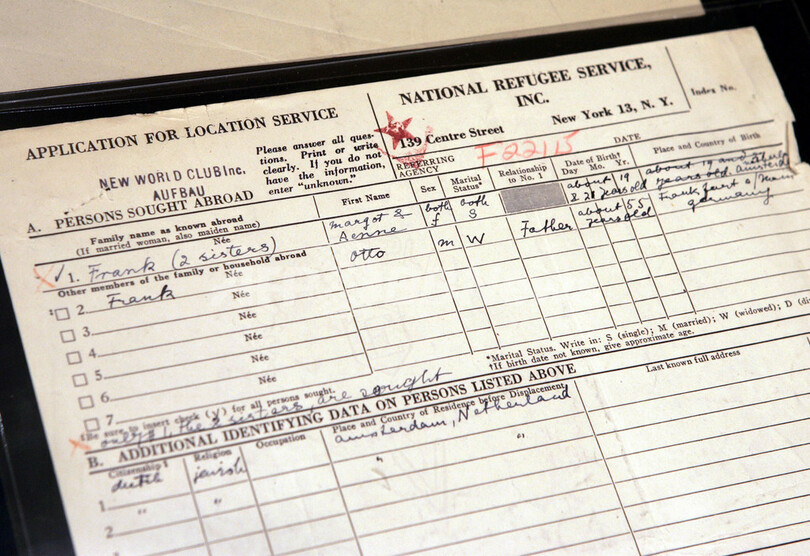 APPLICATION FOR LOCATION SERVICE
NATIONAL REFUGEE SERVICE, INC.
139 Centre Street
New York 13, N. Y.
Index No.
NEW WORLD CLUB Inc.
AUFBAU
Please answer all ques-
tions. Print or write
clearly. If you do not
have the information,
enter "unknown."
REFERRING
AGENCY
F22115
A. PERSONS SOUGHT ABROAD
Family name as known abroad
(If married woman, also maiden name)
First Name
Sex
Marital
Status*
Relationship
to No. 1
DATE
Date of Birth†
Day Mo. Yr.
Place and Country of Birth
Née
✓ 1. Frank (2 sisters)
margot &
Aenne
both
f
both
S
about 19
& 21 years old
about 19 and
years old
Frankfurt o/Main
germany
Other members of the family or household abroad
Née
2. Frank
Otto
m
W
Father
about 55
years old
Née
3.
Née
4.
Née
5.
Née
6.
Née
7.
*Marital Status. Write in: S (single); M (married); W (widowed); D
†If birth date not known, give approximate age.
‡Be sure to insert check (√) for all persons sought.
only the 2 sisters are sought
B. ADDITIONAL IDENTIFYING DATA ON PERSONS LISTED ABOVE
Citizenship
Religion
Occupation
Place and Country of Residence before Displacement
Last known full address
1. dutch
jewish
amsterdam, Netherland
"
"
"
"